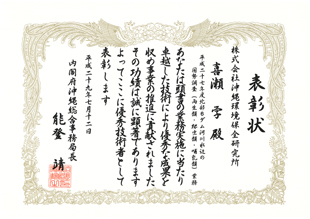 表彰状
株式会社沖縄環境保全研究所
喜瀬 学 殿
平成二十七年度北部ダム河川水辺の
国勢調査(両生類・爬虫類・哺乳類)業務
あなたは頭書の業務実施に当たり
卓越した技術により優秀な成果を
収め事業の推進に貢献されました
その功績は誠に顕著であります
よってここに優秀技術者として
表彰します
平成二十九年七月十二日
内閣府沖縄総合事務局長
能登 靖